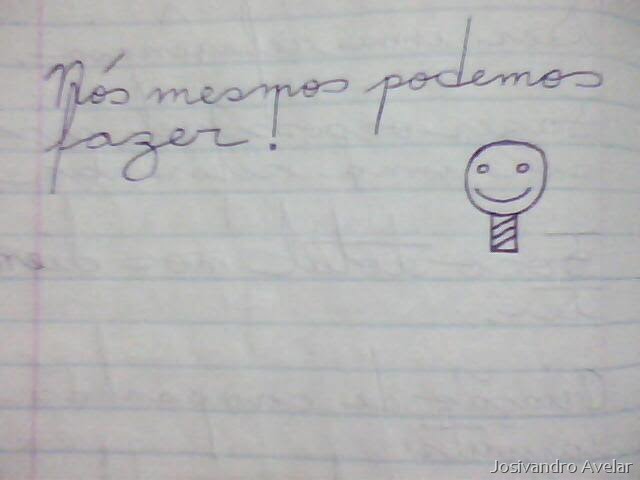 Nós mesmos podemos
fazer!
Josivandro Avelar